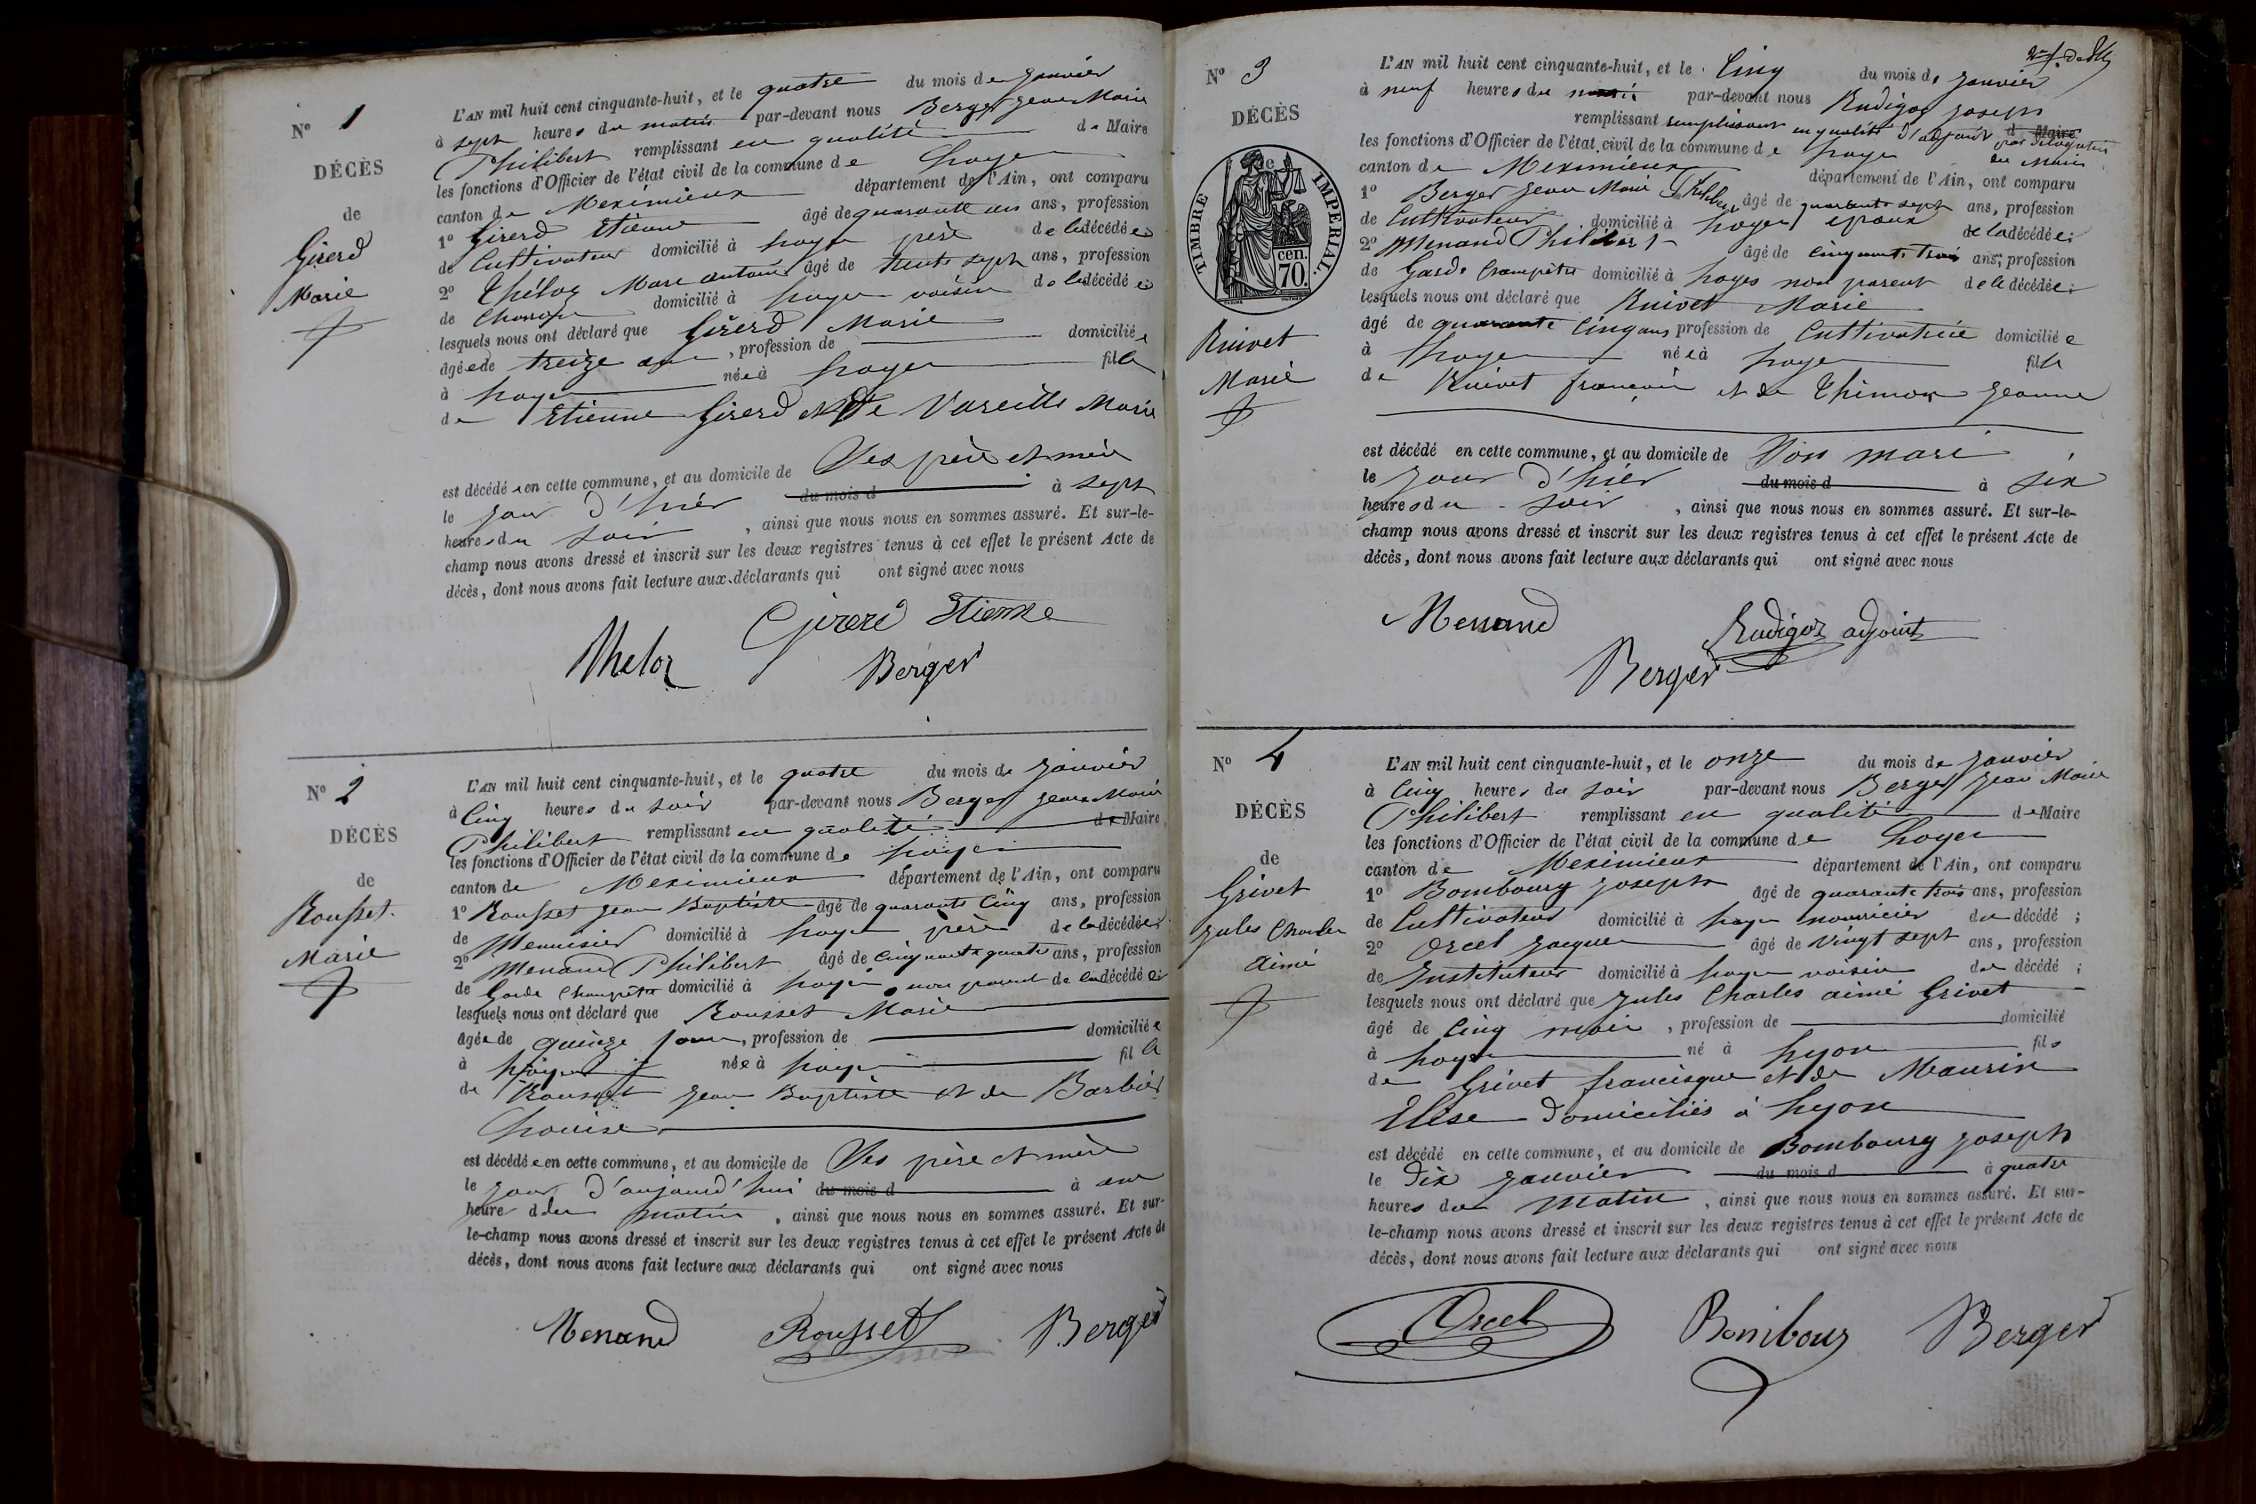 N° 1
DÉCÈS
de
Girerd
Marie
L'AN mil huit cent cinquante-huit, et le quatre du mois de Janvier
à sept heures du matin par-devant nous Berger Jean Marie
Philibert remplissant en qualité de Maire
les fonctions d'Officier de l'état civil de la commune de Loyes
canton de Meximieux département de l'Ain, ont comparu
1° Girerd Etienne âgé de quarante un ans, profession
de Cultivateur domicilié à Loyes père de la décédée
2° Théloz Marc Antoine âgé de trente sept ans, profession
de domicilié à Loyes voisin de la décédée
lesquels nous ont déclaré que Girerd Marie
âgée de treize ans, profession de domiciliée
à Loyes née à Loyes fille
de Etienne Girerd & De Vareille Marie
est décédée en cette commune, et au domicile de Ses père et mère
le jour d'hier du mois d à sept
heures du soir, ainsi que nous nous en sommes assuré. Et sur-le-
champ nous avons dressé et inscrit sur les deux registres tenus à cet effet le présent Acte de
décès, dont nous avons fait lecture aux déclarants qui ont signé avec nous
Girerd Etienne
Theloz
Berger
N° 2
DÉCÈS
de
Rousset
Marie
L'AN mil huit cent cinquante-huit, et le quatre du mois de Janvier
à Cinq heures du soir par-devant nous Berger Jean Marie
Philibert remplissant en qualité de Maire
les fonctions d'Officier de l'état civil de la commune de Loyes
canton de Meximieux département de l'Ain, ont comparu
1° Rousset Jean Baptiste âgé de quarante Cinq ans, profession
de Menuisier domicilié à Loyes père de la décédée
2° Menand Philibert âgé de cinquante quatre ans, profession
de Garde Champêtre domicilié à Loyes non parent de la décédée
lesquels nous ont déclaré que Rousset Marie
âgée de quinze jours, profession de domiciliée
à Loyes née à Loyes fille
de Rousset Jean Baptiste et de Barbier
Louise
est décédée en cette commune, et au domicile de Ses père et mère
le jour d'aujourd'hui du mois d à une
heure du matin, ainsi que nous nous en sommes assuré. Et sur-
le-champ nous avons dressé et inscrit sur les deux registres tenus à cet effet le présent Acte de
décès, dont nous avons fait lecture aux déclarants qui ont signé avec nous
Menand Rousset Berger
N° 3
DÉCÈS
de
TIMBRE IMPÉRIAL.
70 cen.
Ruivet
Marie
L'AN mil huit cent cinquante-huit, et le Cinq du mois de Janvier
à neuf heures du matin par-devant nous Rudigoz Joseph
remplissant remplissant en qualité d'adjoint d Maire par délégation
du Maire
les fonctions d'Officier de l'état civil de la commune de Loyes
canton de Meximieux département de l'Ain, ont comparu
1° Berger Jean Marie Philibert âgé de quarante sept ans, profession
de Cultivateur domicilié à Loyes époux de la décédée;
2° Menand Philibert âgé de cinquante trois ans, profession
de Garde Champêtre domicilié à Loyes non parent de la décédée;
lesquels nous ont déclaré que Ruivet Marie
âgé de quarante Cinq ans profession de Cultivatrice domiciliée
à Loyes née à Loyes fille
de Ruivet françois et de Thimon Jeanne
est décédé en cette commune, et au domicile de Son mari
le jour d'hier du mois d à six
heures du soir, ainsi que nous nous en sommes assuré. Et sur-le-
champ nous avons dressé et inscrit sur les deux registres tenus à cet effet le présent Acte de
décès, dont nous avons fait lecture aux déclarants qui ont signé avec nous
Menand Rudigoz adjoint
Berger
N° 4
DÉCÈS
de
Grivet
Jules Charles
Aimé
L'AN mil huit cent cinquante-huit, et le onze du mois de Janvier
à Cinq heures du soir par-devant nous Berger Jean Marie
Philibert remplissant en qualité de Maire
les fonctions d'Officier de l'état civil de la commune de Loyes
canton de Meximieux département de l'Ain, ont comparu
1° Bombourg Joseph âgé de quarante trois ans, profession
de Cultivateur domicilié à Loyes nourricier du décédé;
2° Orcel Jacques âgé de Vingt sept ans, profession
de Instituteur domicilié à Loyes voisin du décédé;
lesquels nous ont déclaré que Jules Charles aimé Grivet
âgé de Cinq mois, profession de domicilié
à Loyes né à Lyon fils
de Grivet francisque et de Maurin
Elise domiciliés à Lyon
est décédé en cette commune, et au domicile de Bombourg Joseph
le Dix Janvier du mois d à quatre
heures du matin, ainsi que nous nous en sommes assuré. Et sur-
le-champ nous avons dressé et inscrit sur les deux registres tenus à cet effet le présent Acte de
décès, dont nous avons fait lecture aux déclarants qui ont signé avec nous
Orcel Bombour Berger